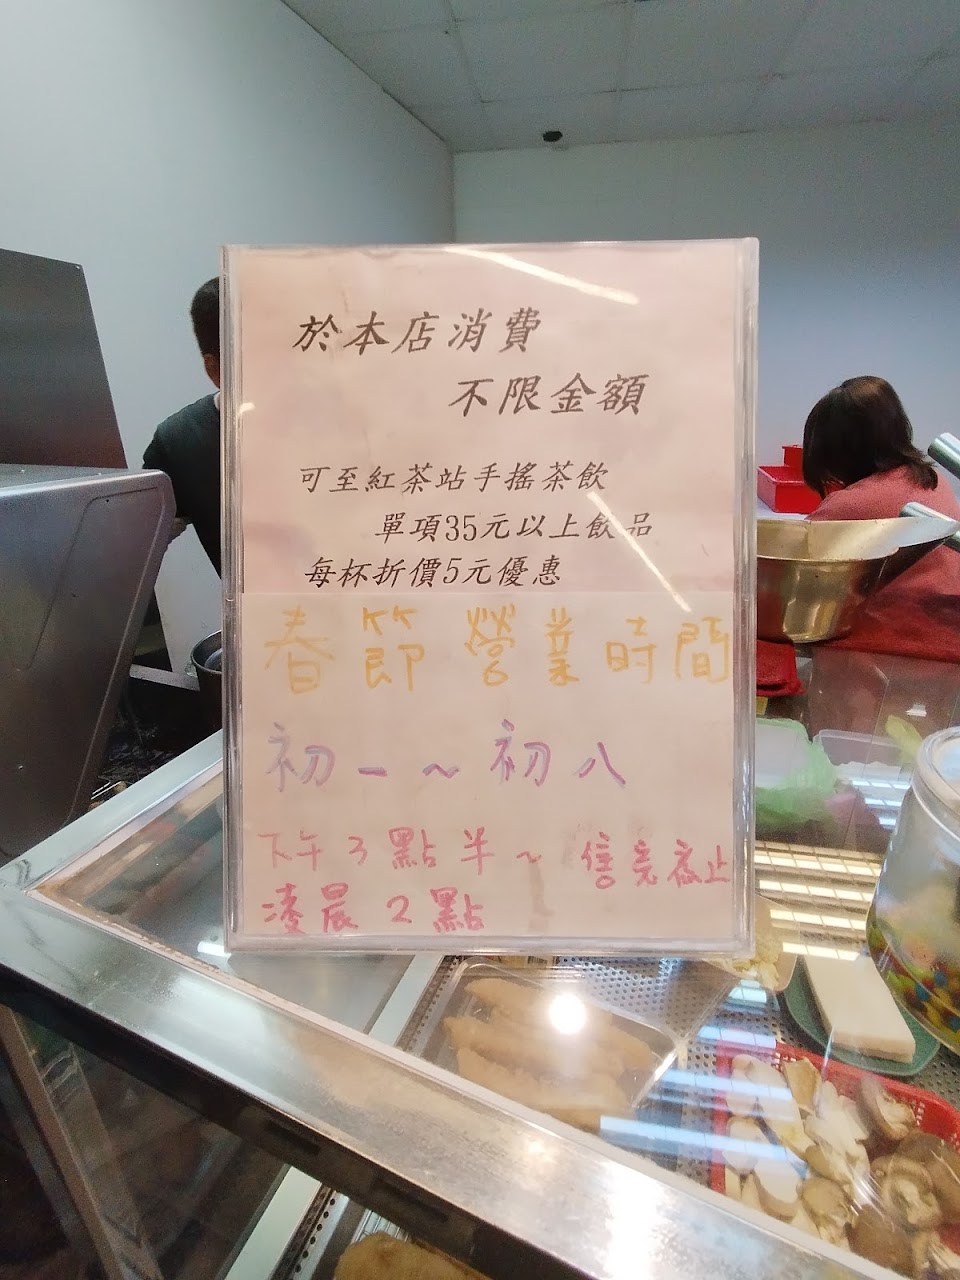 於本店消費
不限金額
可至紅茶站手搖茶飲
單項35元以上飲品
每杯折價5元優惠
春節營業時間
初一~初八
下午3點半~ 售完為止
凌晨2點